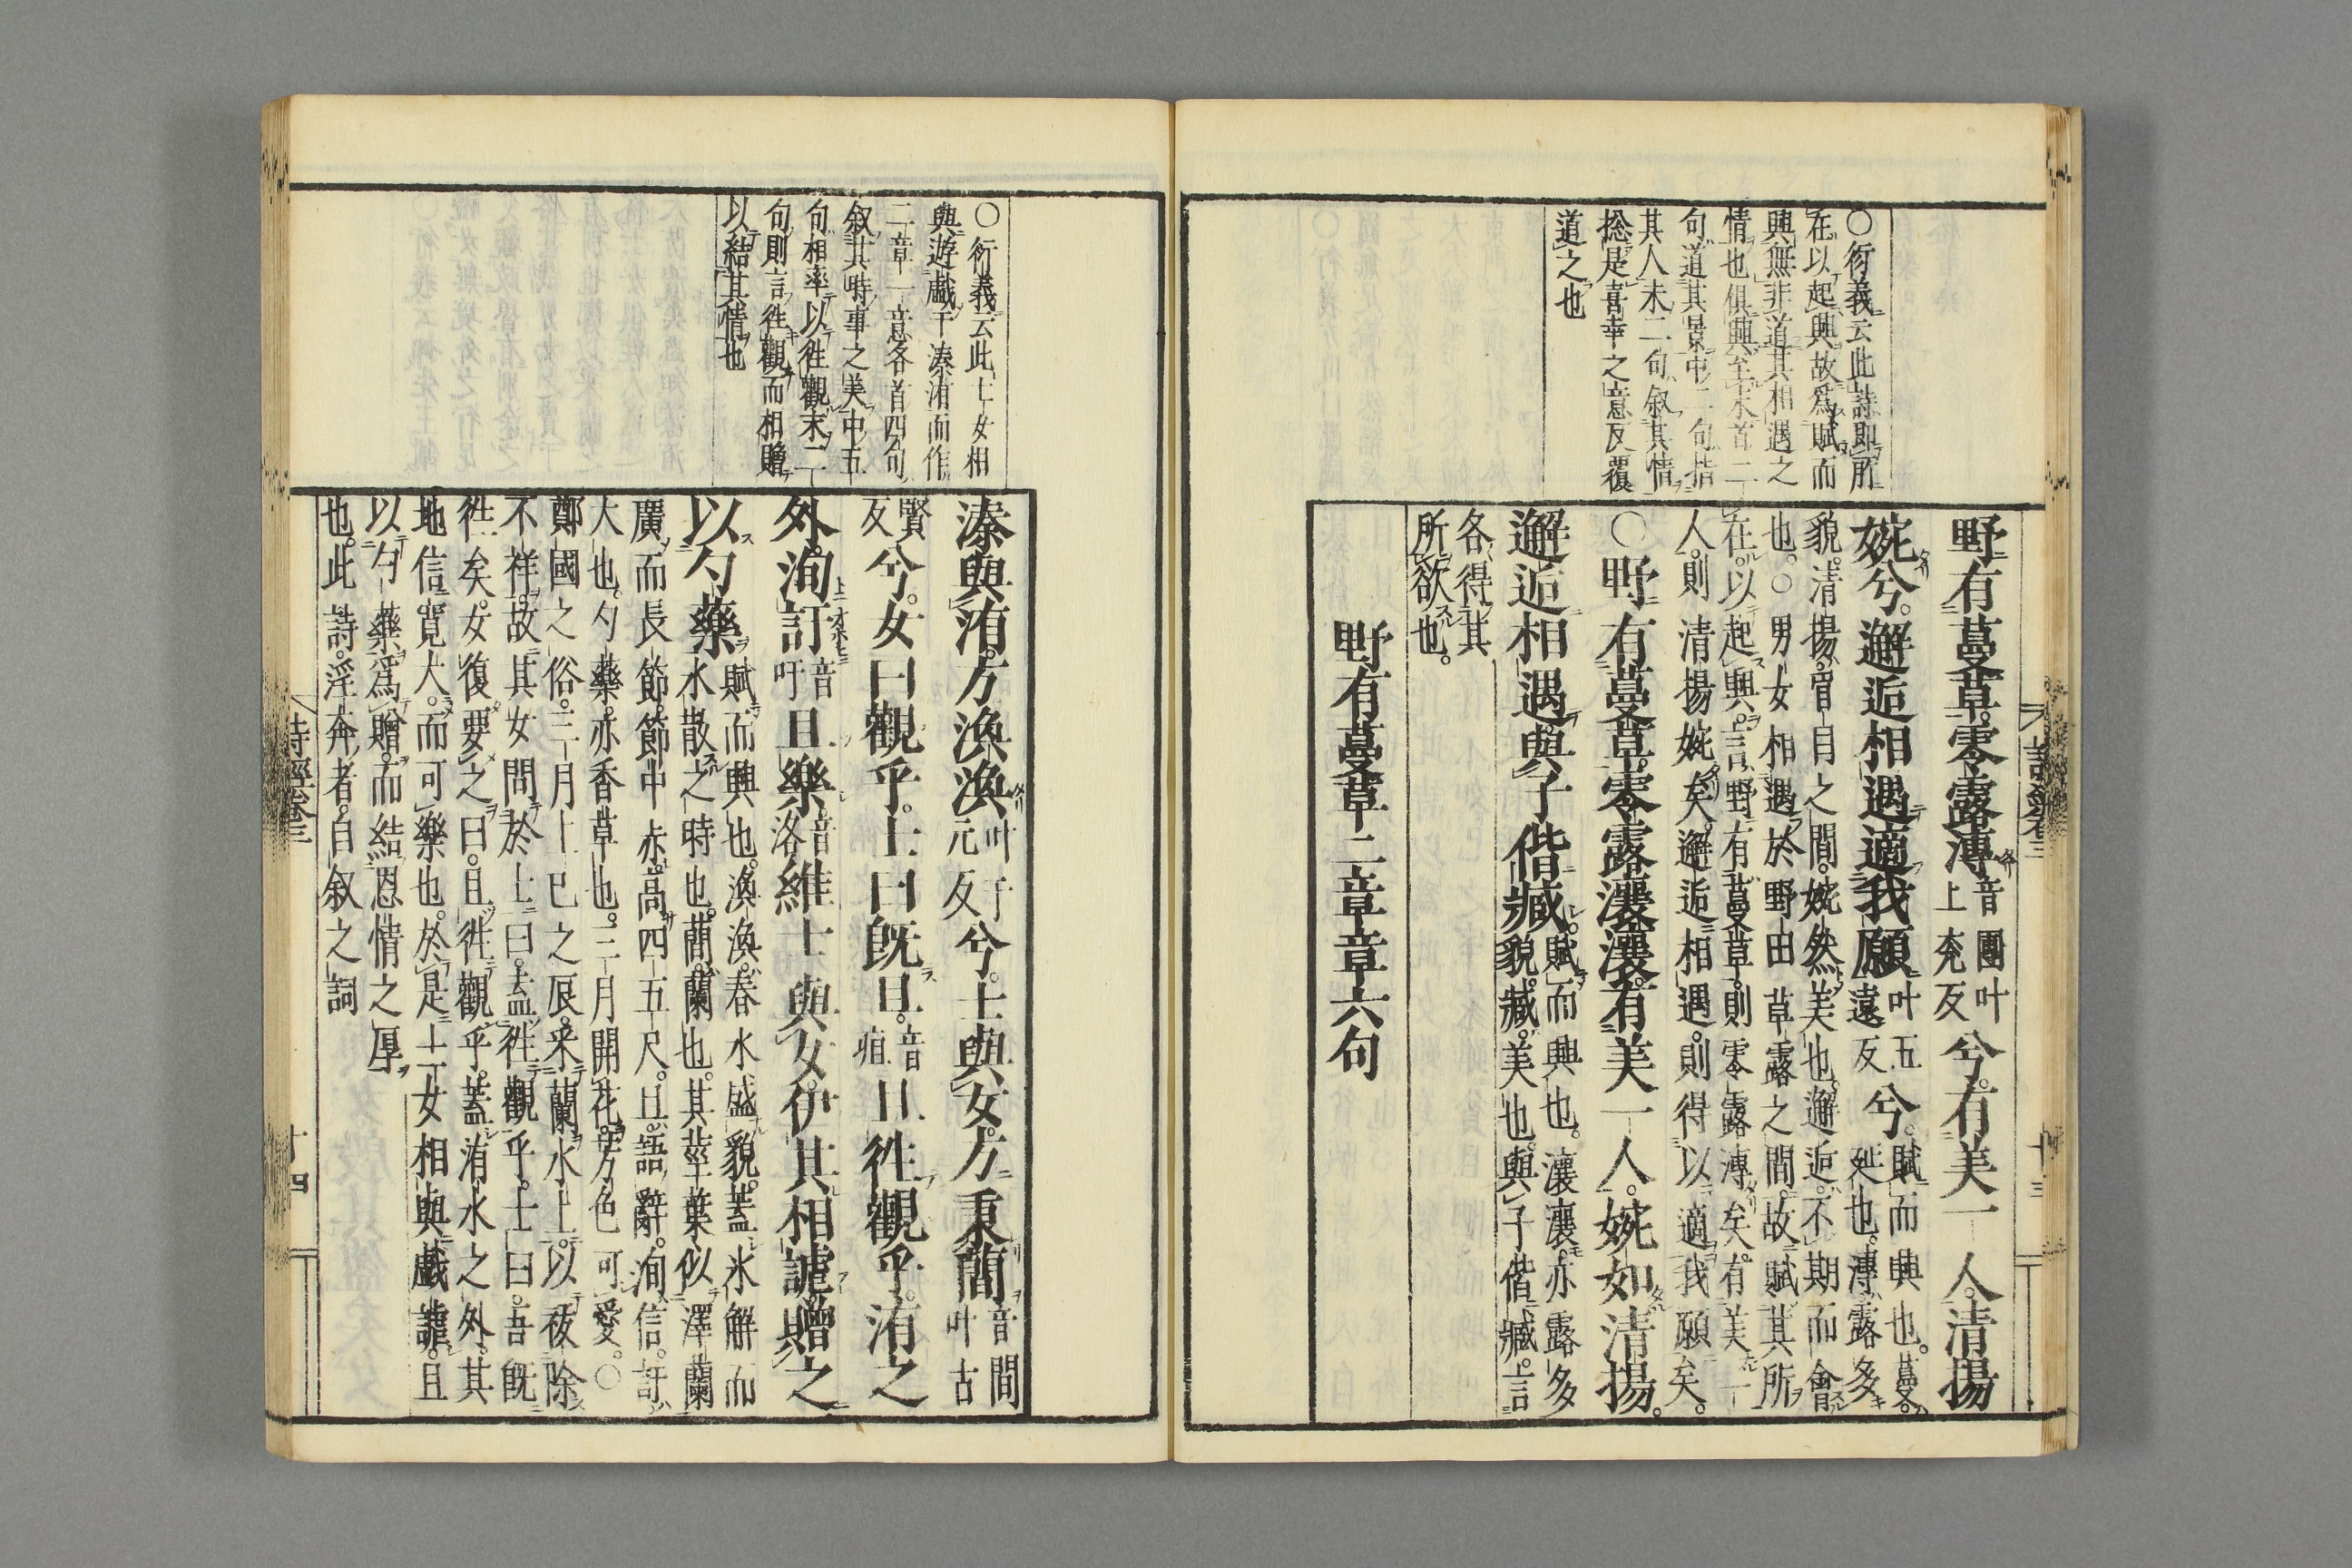 ○衍義云此詩即所
在以起興故爲賦而
興無非道其相遇之
情也俱興至末首二
句道其景中二句指
其人末二句叙其情
捴是喜幸之意反覆
道之也
野有蔓草零露漙音團叶上兖反兮有美一人清揚
婉兮邂逅相遇適我願叶五遠反兮賦而興也蔓延也漙露多
貌清揚眉目之間婉然美也邂逅不期而會
也○男女相遇於野田草露之間故賦其所
在以起興言野有蔓草則零露漙矣有美一
人則清揚婉矣邂逅相遇則得以適我願矣
○野有蔓草零露瀼瀼有美一人婉如清揚
邂逅相遇與子偕臧賦而興也瀼瀼亦露多貌臧美也與子偕臧言
各得其
所欲也
野有蔓草二章章六句
詩經卷三
十三
○衍義云此士女相
與遊戲于溱洧而作
二章一意各首四句
叙其時事之美中五
句相率以徃觀末二
句則言徃觀而相贈
以結其情也
溱與洧方渙渙叶于元反兮士與女方秉蕑音間叶古
賢反兮女曰觀乎士曰既且音疽且徃觀乎洧之
外洵訏音吁且樂音洛維士與女伊其相謔贈之
以勺藥賦而興也渙渙春水盛貌蓋氷解而水散之時也蕑蘭也其莖葉似澤蘭
廣而長節節中赤高四五尺且語辭洵信訏
大也勺藥亦香草也三月開花芳色可愛○
鄭國之俗三月上巳之辰采蘭水上以祓除
不祥故其女問於士曰盍徃觀乎士曰吾既
徃矣女復要之曰且徃觀乎蓋洧水之外其
地信寛大而可樂也於是士女相與戲謔且
以勺藥爲贈而結恩情之厚
也此詩淫奔者自叙之詞
詩經卷三
十四